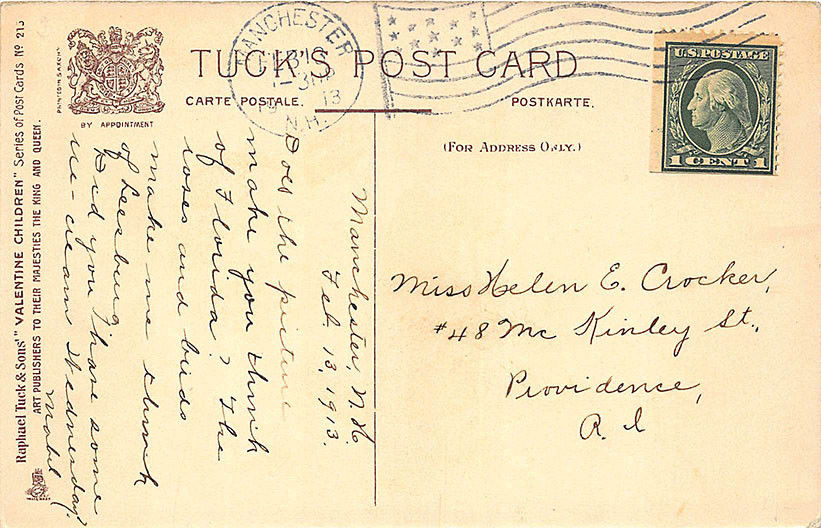 Raphael Tuck & Sons' "VALENTINE CHILDREN" Series of Post Cards Nº 213
ART PUBLISHERS TO THEIR MAJESTIES THE KING AND QUEEN.
BY APPOINTMENT
TUCK'S POST CARD
CARTE POSTALE.
POSTKARTE.
(FOR ADDRESS ONLY.)
MANCHESTER
13
N.H.
U.S. POSTAGE
1 CENT 1
Manchester, N.H.
Feb. 13, 1913.
Does the picture
make you think
of Florida? The
roses and birds
make me think
of Leesburg.
Did you have some
ice-cream Wednesday?
Mabel
Miss Helen E. Crocker,
#48 Mc Kinley St.,
Providence,
R. I